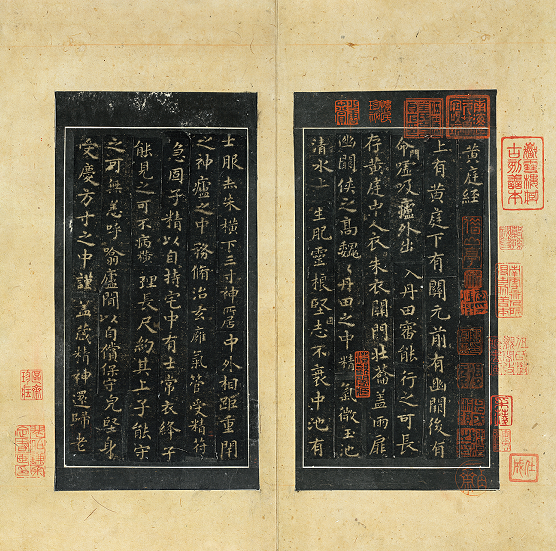 黄庭経
上有黄庭下有關元前有幽闕後有
命門嘘吸廬外出入丹田審能行之可長
存黄庭中人衣朱衣關門壮蘥蓋兩扉
幽闕侠之高魏魏丹田之中精氣微玉池
清水上生肥靈根堅志不衰中池有
士服赤朱横下三寸神所居中外相距重閇
之神廬之中務脩治玄廱氣管受精符
急固子精以自持宅中有士常衣絳子
能見之可不病横理長尺約其上子能守
之可無恙呼噏廬間以自償保守完堅身
受慶方寸之中謹蓋藏精神還歸老